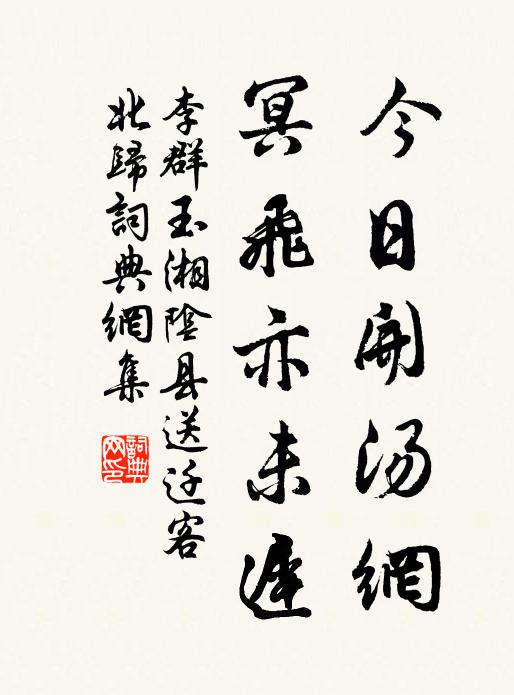 今日開湯網
冥飛亦未遲
李群玉湘陰县送迁客
北歸詞典網集
詞典
网印